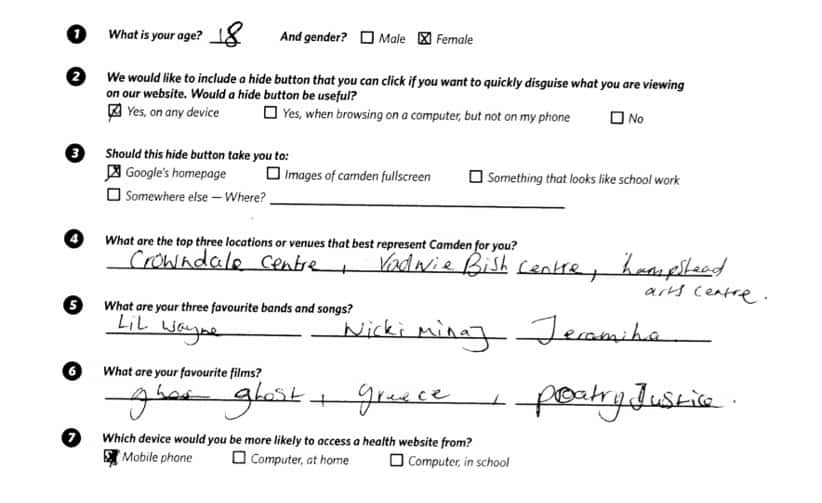 1 What is your age? 18 And gender? ☐ Male ☒ Female
2 We would like to include a hide button that you can click if you want to quickly disguise what you are viewing
on our website. Would a hide button be useful?
☒ Yes, on any device ☐ Yes, when browsing on a computer, but not on my phone ☐ No
3 Should this hide button take you to:
☒ Google's homepage ☐ Images of camden fullscreen ☐ Something that looks like school work
☐ Somewhere else — Where?
4 What are the top three locations or venues that best represent Camden for you?
Crowndale Centre, Bish Centre, hampstead
arts centre.
5 What are your three favourite bands and songs?
Lil Wayne Nicki Minaj Jeramiha
6 What are your favourite films?
ghost, greece, poatry Justice.
7 Which device would you be more likely to access a health website from?
☒ Mobile phone ☐ Computer, at home ☐ Computer, in school